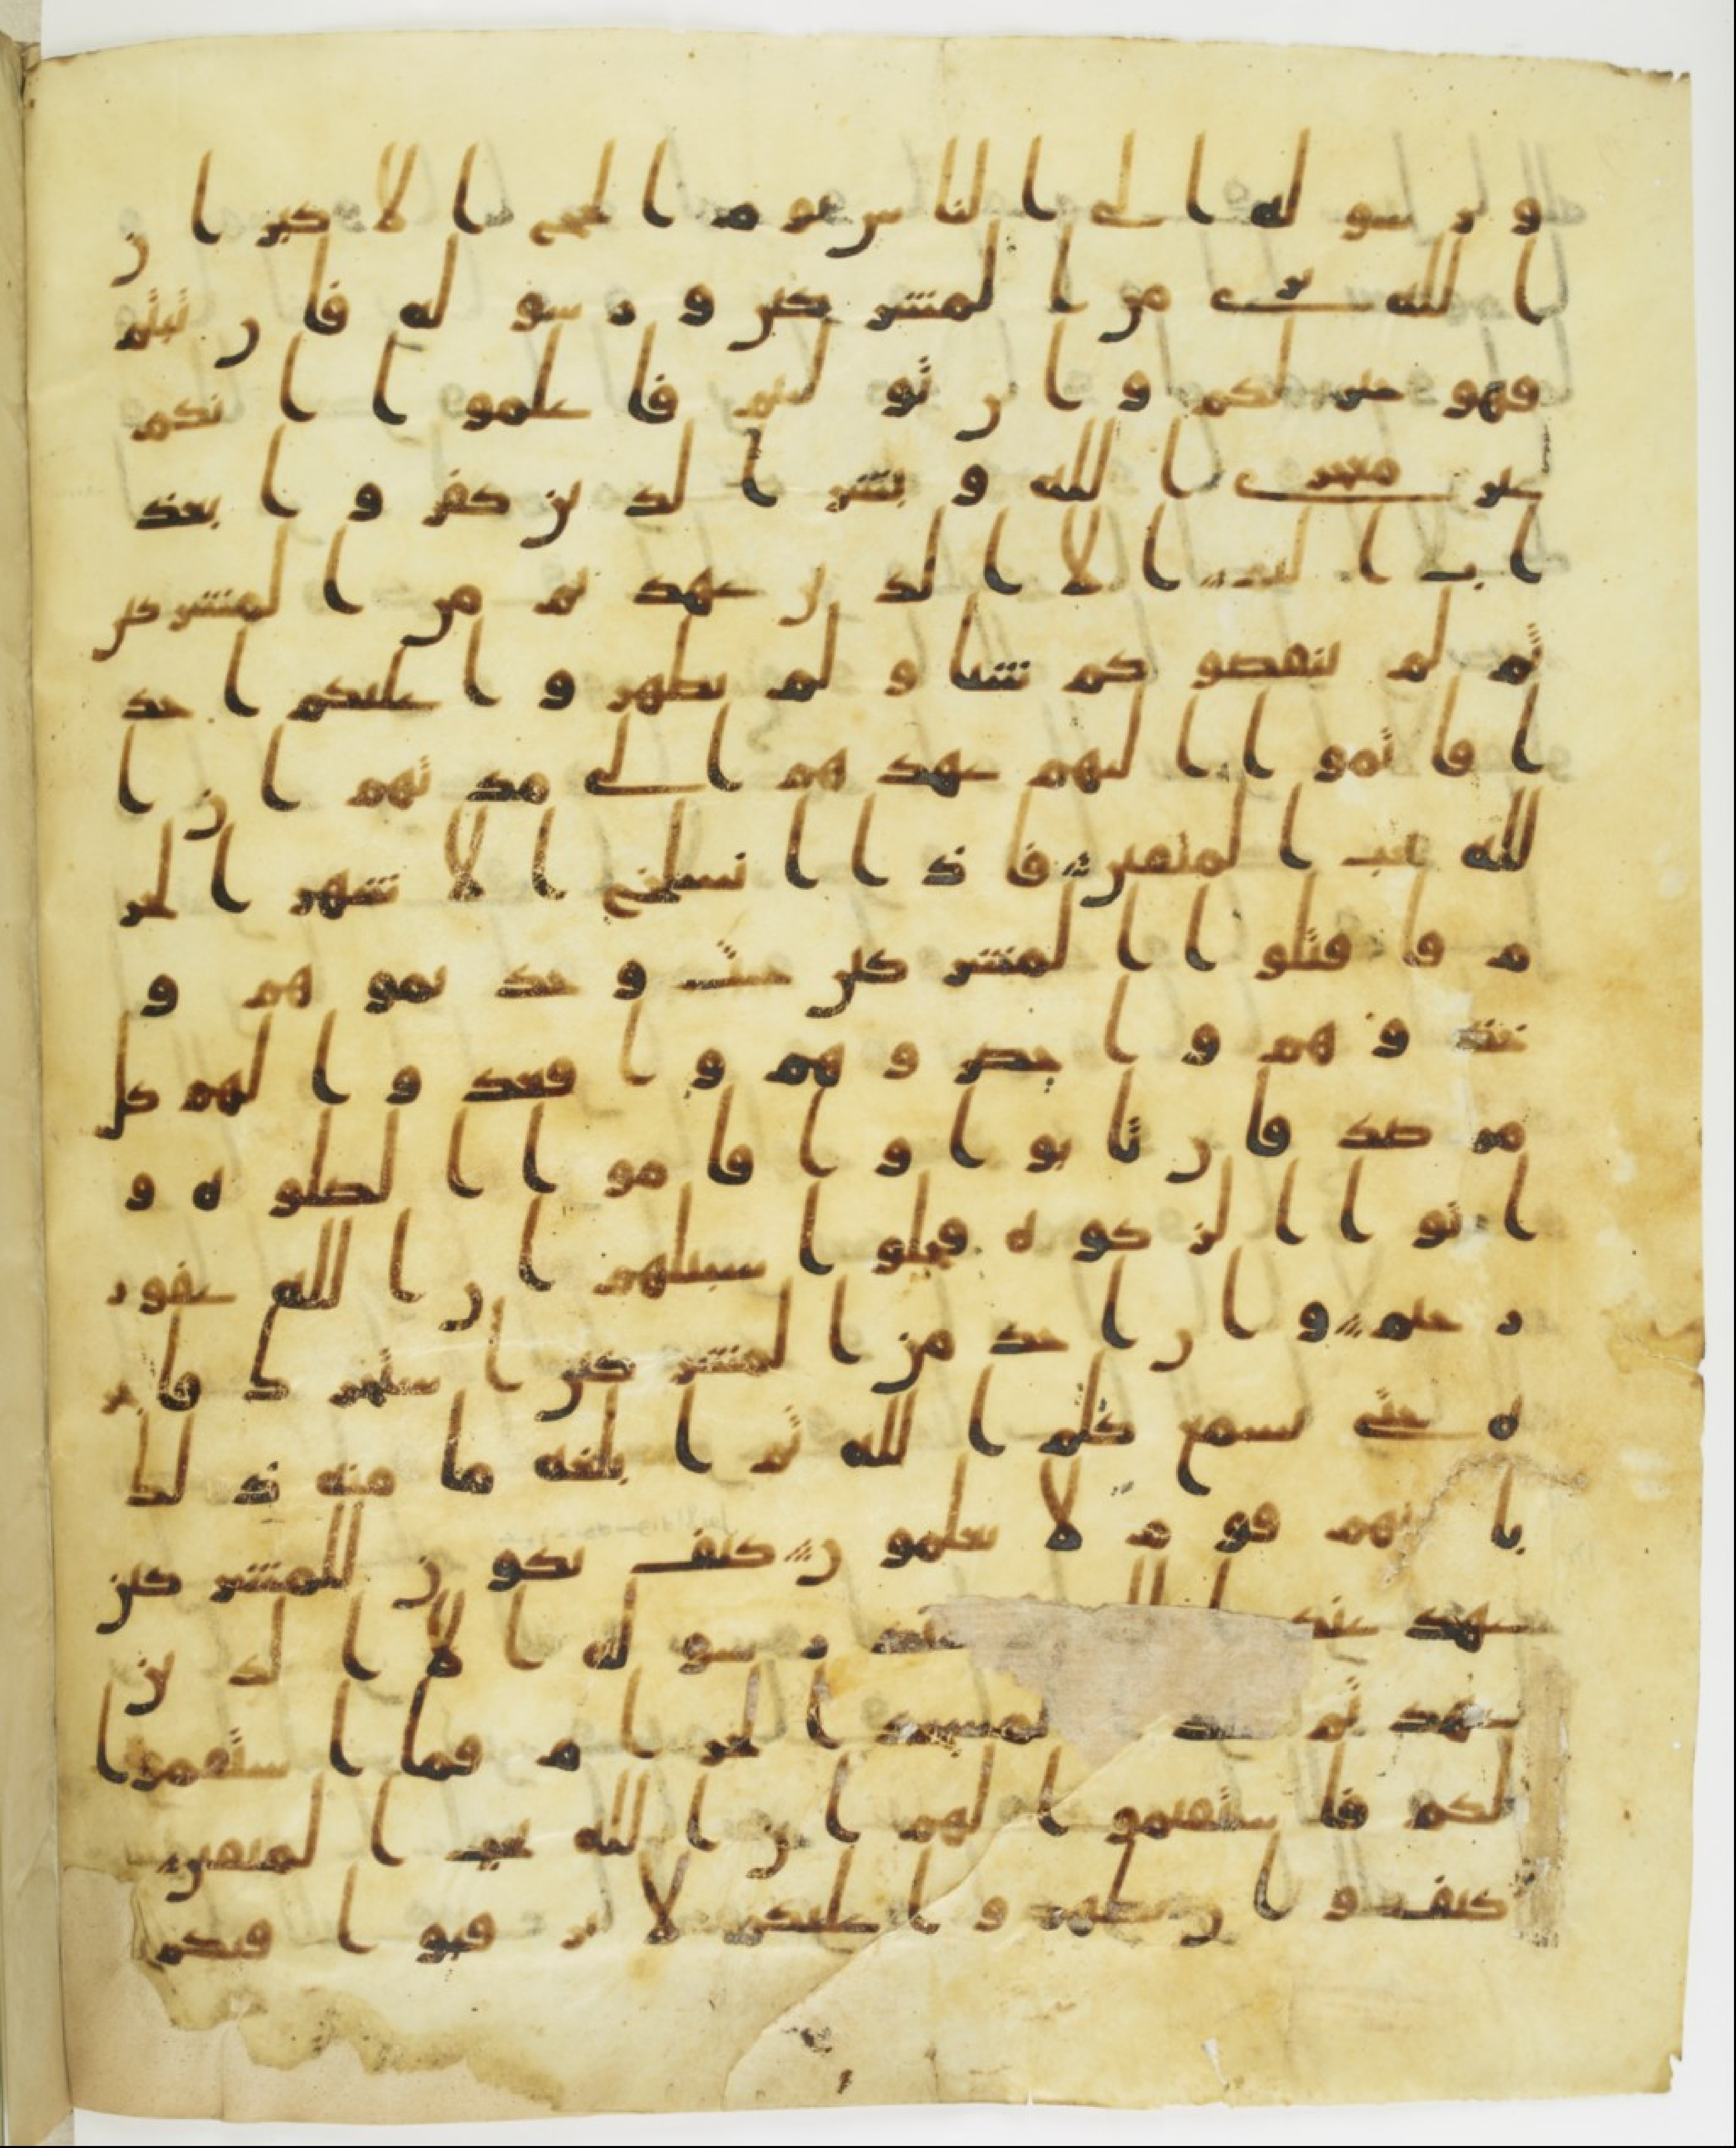 ورسوله الى الناس يوم الحج الاكبر ان
الله برى من المشركين ورسوله فان تبتم
فهو خير لكم وان توليتم فاعلموا انكم
غير معجزى الله وبشر الذين كفروا بعذ
اب اليم الا الذين عهدتم من المشركين
ثم لم ينقصوكم شيا ولم يظهروا عليكم احد
ا فاتموا اليهم عهدهم الى مدتهم ان ا
لله يحب المتقين فاذا انسلخ الاشهر الحر
م فاقتلوا المشركين حيث وجدتموهم و
خذوهم واحصروهم واقعدوا لهم كل
مرصد فان تابوا واقاموا الصلوه و
اتوا الزكوه فخلوا سبيلهم ان الله غفور
رحيم وان احد من المشركين استجرك فاجر
ه حتى يسمع كلم الله ثم ابلغه مامنه ذلك
بانهم قوم لا يعلمون كيف يكون للمشركين
عهد عند رسوله الا الذين
عهدتم عند المسجد الحرام فما استقموا
لكم فاستقيموا لهم ان الله يحب المتقين
كيف وان يظهروا عليكم لا يرقبوا فيكم